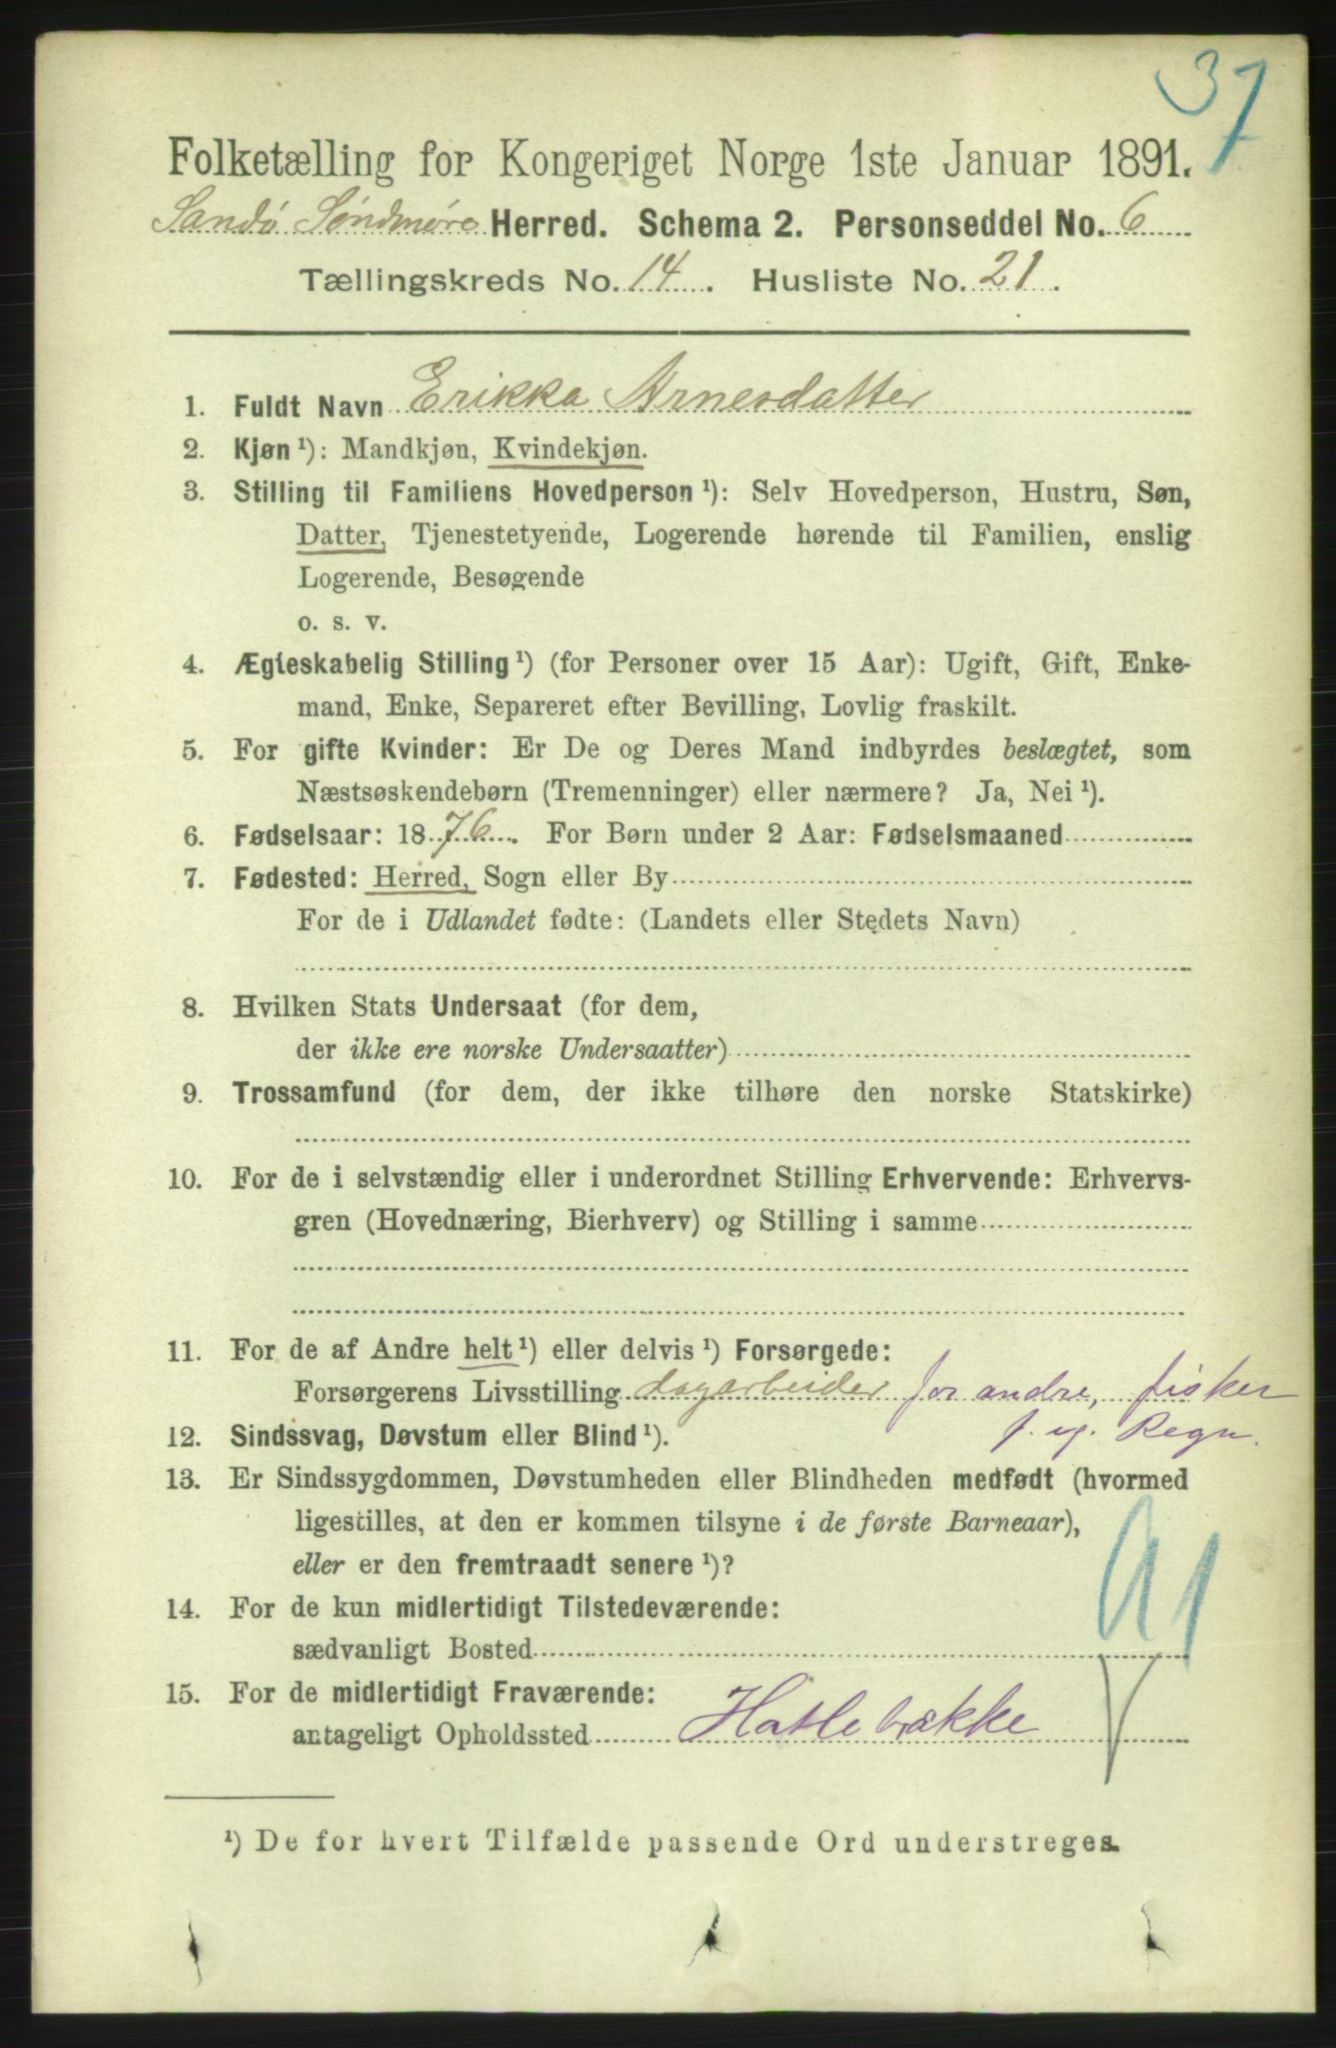 37
Folketælling for Kongeriget Norge 1ste Januar 1891.
Sandø Søndmøre Herred. Schema 2. Personseddel No. 6
Tællingskreds No. 14. Husliste No. 21.
1. Fuldt Navn Erikka Arnesdatter
2. Kjøn¹): Mandkjøn, Kvindekjøn.
3. Stilling til Familiens Hovedperson¹): Selv Hovedperson, Hustru, Søn,
Datter, Tjenestetyende, Logerende hørende til Familien, enslig
Logerende, Besøgende
o. s. v.
4. Ægteskabelig Stilling¹) (for Personer over 15 Aar): Ugift, Gift, Enke-
mand, Enke, Separeret efter Bevilling, Lovlig fraskilt.
5. For gifte Kvinder: Er De og Deres Mand indbyrdes beslægtet, som
Næstsøskendebørn (Tremenninger) eller nærmere? Ja, Nei¹).
6. Fødselsaar: 1876. For Børn under 2 Aar: Fødselsmaaned
7. Fødested: Herred, Sogn eller By
For de i Udlandet fødte: (Landets eller Stedets Navn)
8. Hvilken Stats Undersaat (for dem,
der ikke ere norske Undersaatter)
9. Trossamfund (for dem, der ikke tilhøre den norske Statskirke)
10. For de i selvstændig eller i underordnet Stilling Erhvervende: Erhvervs-
gren (Hovednæring, Bierhverv) og Stilling i samme
11. For de af Andre helt¹) eller delvis¹) Forsørgede:
Forsørgerens Livsstilling dagarbeider for andre, fisker
f. eg. Regn.
12. Sindssvag, Døvstum eller Blind¹).
13. Er Sindssygdommen, Døvstumheden eller Blindheden medfødt (hvormed
ligestilles, at den er kommen tilsyne i de første Barneaar),
eller er den fremtraadt senere¹)?
14. For de kun midlertidigt Tilstedeværende:
sædvanligt Bosted
91
15. For de midlertidigt Fraværende:
antageligt Opholdssted Hatlebrække
¹) De for hvert Tilfælde passende Ord understreges.